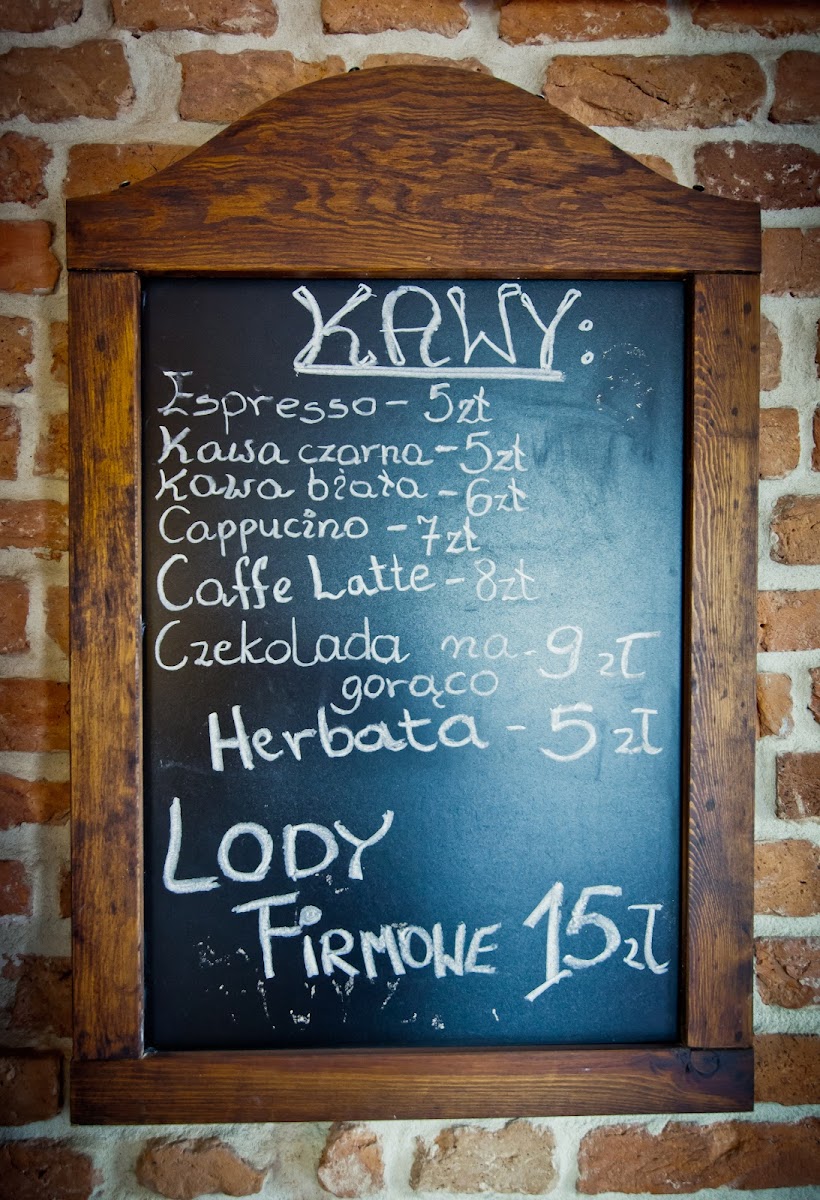 KAWY:
Espresso - 5zł
Kawa czarna - 5zł
Kawa biała - 6zł
Cappucino - 7zł
Caffe Latte - 8zł
Czekolada na - 9 zł
gorąco
Herbata - 5 zł
LODY
FIRMOWE 15 zł